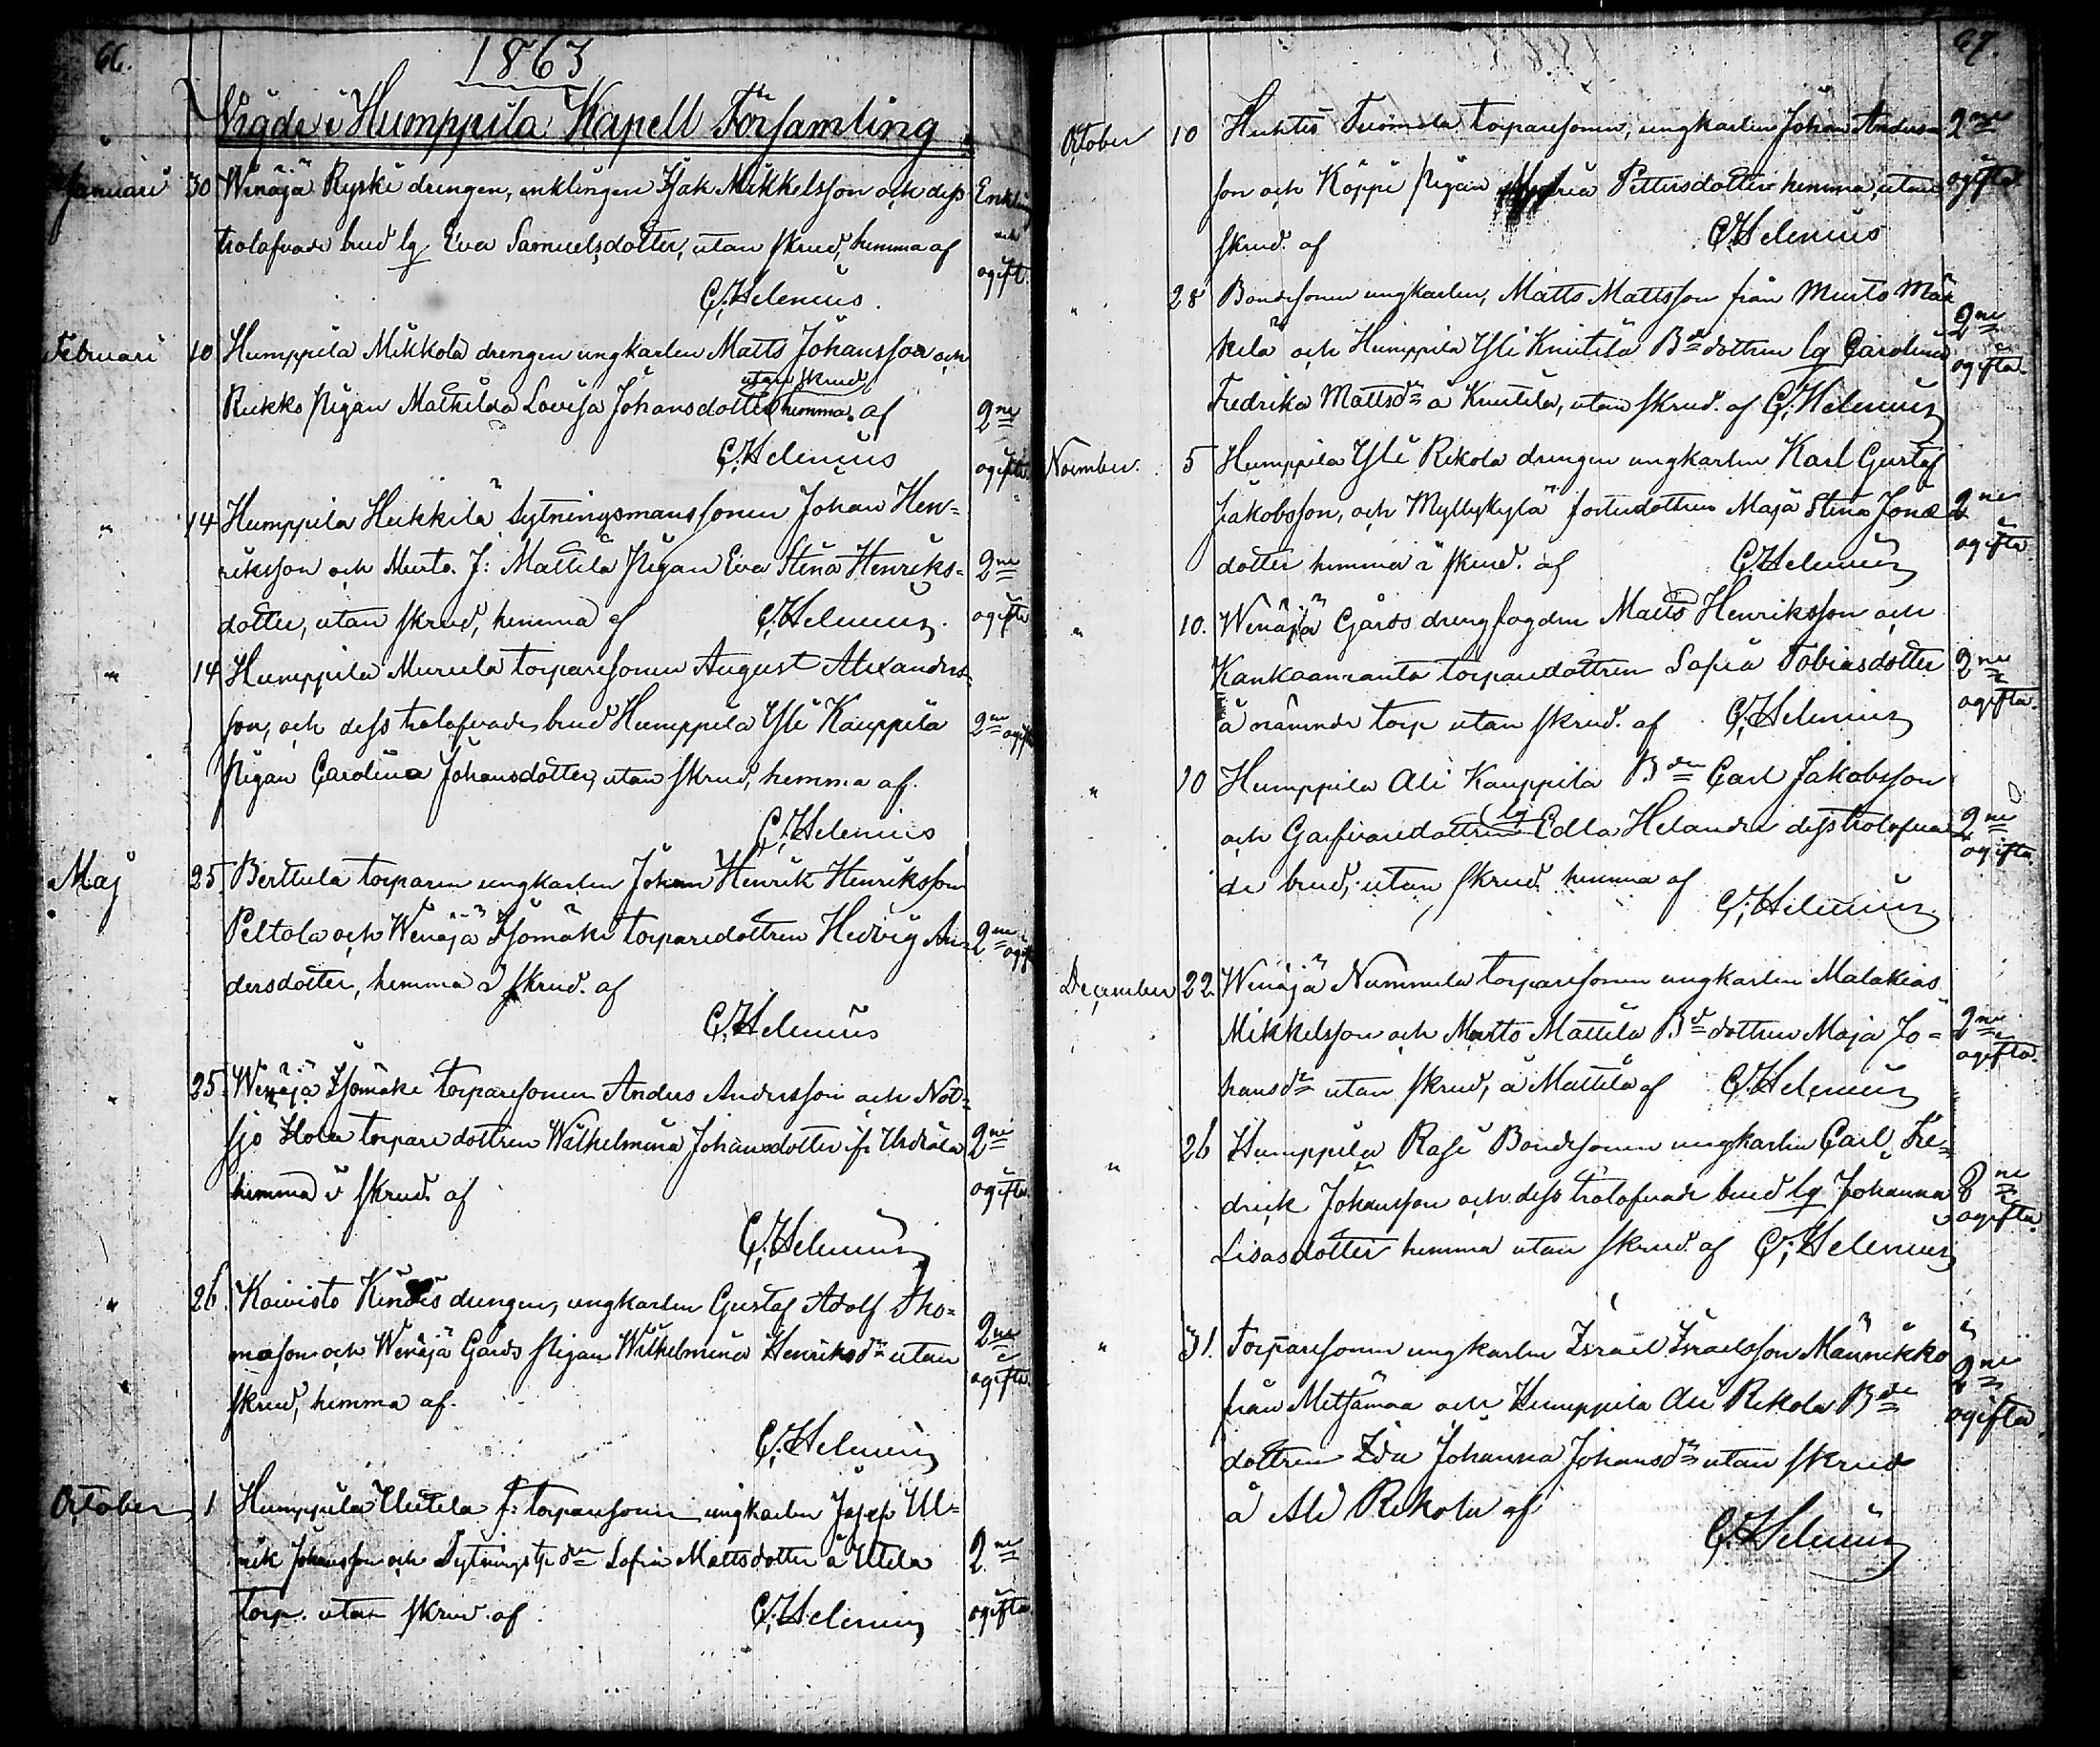 66.
1863
Vigde i Humppila Kapell Församling
Januari 30 Wenäjä Ryski drengen, enklingen Isak Mikkelsson och dess Enkling
trolofvade brud lg Eva Samuelsdotter, utan skrud, hemma af och ogift.
C. Helenius.
Februari 10 Humppila Mikkola drengen ungkarlen Matts Johansson och
utan skrud
Rukko pigan Mathilda Lovisa Johansdotter hemma. af 2ne
C. Helenius ogifta
" 14 Humppila Heikkilä Sytningsmanssonen Johan Hen=
riksson och Murto J: Mattila pigan Eva Stina Henriks= 2ne
dotter, utan skrud, hemma af C. Helenius. ogifta
" 14 Humppila Murula torparesonen August Alexanders=
son, och dess trolofvade brud Humppila Yli Kauppila 2ne ogifta
pigan Carolina Johansdotter, utan skrud, hemma af
C. Helenius
Maj 25 Berttula torparen ungkarlen Johan Henrik Henriksson
Peltola och Wenäjä Isomäki torparedottren Hedvig An= 2ne ogifta
dersdotter, hemma i skrud. af
C. Helenius
" 25 Wenäjä Isomäki torparesonen Anders Andersson och Not=
sjö torpare dottren Wilhelmina Johansdotter fr. Urdiala 2ne
hemma i skrud. af ogifta.
C. Helenius
" 26. Koivisto drengen, ungkarlen Gustaf Adolf Tho=
mason och Wenäjä Gårds pigan Wilhelmina Henriksdr utan 2ne
skrud, hemma af. ogifta.
C. Helenius
October 1 Humppila Uutela f: torparesonen ungkarlen Josep Ul=
rik Johansson och Sofia Mattsdotter å Utela 2ne
torp. utan skrud. af C. Helenius ogifta

67.
October 10 Huhtis Tuomola torparesonen, ungkarlen Johan Anders= 2ne
son och Koppi pigan Pettersdotter hemma, utan ogifta
skrud. af C. Helenius
" 28 Bondesonen ungkarlen, Matts Mattsson från Murto Mä=
kelä och Humppila Yli Knutila Bdedottren lg Carolina 2ne
Fredrika Mattsdr å Knutila, utan skrud. af C. Helenius ogifta.
November. 5 Humppila Yli Rikola drengen ungkarlen Karl Gustaf
Jakobsson, och Myllykylä fosterdottren Maja Stina Jonæ 2ne
dotter hemma i skrud. af C. Helenius ogifta.
" 10. Wenäjä Gårds drengfogden Matts Henriksson och
Kankaanranta torparedottren Sofia Tobiasdotter 2ne
å nämnde torp utan skrud. af C. Helenius ogifta.
" 10 Humppila Ali Kauppila Bden Carl Jakobsson
och Garfvaredottren lg Edla Helander dess trolofva= 2ne
de brud, utan skrud hemma af ogifta.
C. Helenius
December 22. Wenäjä Nummela torparesonen ungkarlen Malakias
Mikkelsson och Murto Mattila Bdedottren Maja Jo= 2ne
hansdr utan skrud, å Mattila af C. Helenius ogifta.
" 26 Humppila Rasi Bondesonen ungkarlen Carl Fre=
drick Johansson och dess trolofvade brud lg Johanna 2ne
Lisasdotter hemma utan skrud. af C. Helenius ogifta.
" 31. Torparesonen ungkarlen Israel Israelsson Männikkö
från Mettämaa och Humppila Ali Rikola Bde 2ne
dottren Ida Johanna Johansdr utan skrud ogifta
å Ali Rikola af
C. Helenius